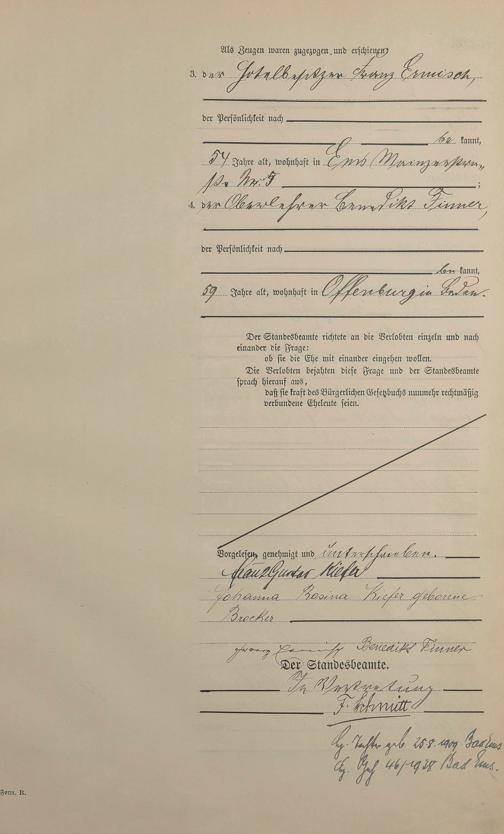 Als Zeugen waren zugezogen und erschienen:
3. der Hotelbesitzer Franz Ermisch,
der Persönlichkeit nach
be kannt,
54 Jahre alt, wohnhaft in Ems Mainzerstra-
ße Nr. 5 ;
4. der Oberlehrer Benedikt Finner,
der Persönlichkeit nach
be kannt,
59 Jahre alt, wohnhaft in Offenburg in Baden.
Der Standesbeamte richtete an die Verlobten einzeln und nach
einander die Frage:
ob sie die Ehe mit einander eingehen wollen.
Die Verlobten bejahten diese Frage und der Standesbeamte
sprach hierauf aus,
daß sie kraft des Bürgerlichen Gesetzbuchs nunmehr rechtmäßig
verbundene Eheleute seien.
Vorgelesen, genehmigt und unterschrieben.
Franz Gustav Kiefer
Johanna Rosina Kiefer geborene
Brocker
Franz Ermisch Benedikt Finner
Der Standesbeamte.
In Vertretung
F. Schmitt
geb 25.8.1909 Bad Ems
46/1938 Bad Ems.
Form. B.